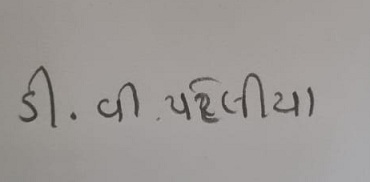 ડી. વી. પરેલીયા